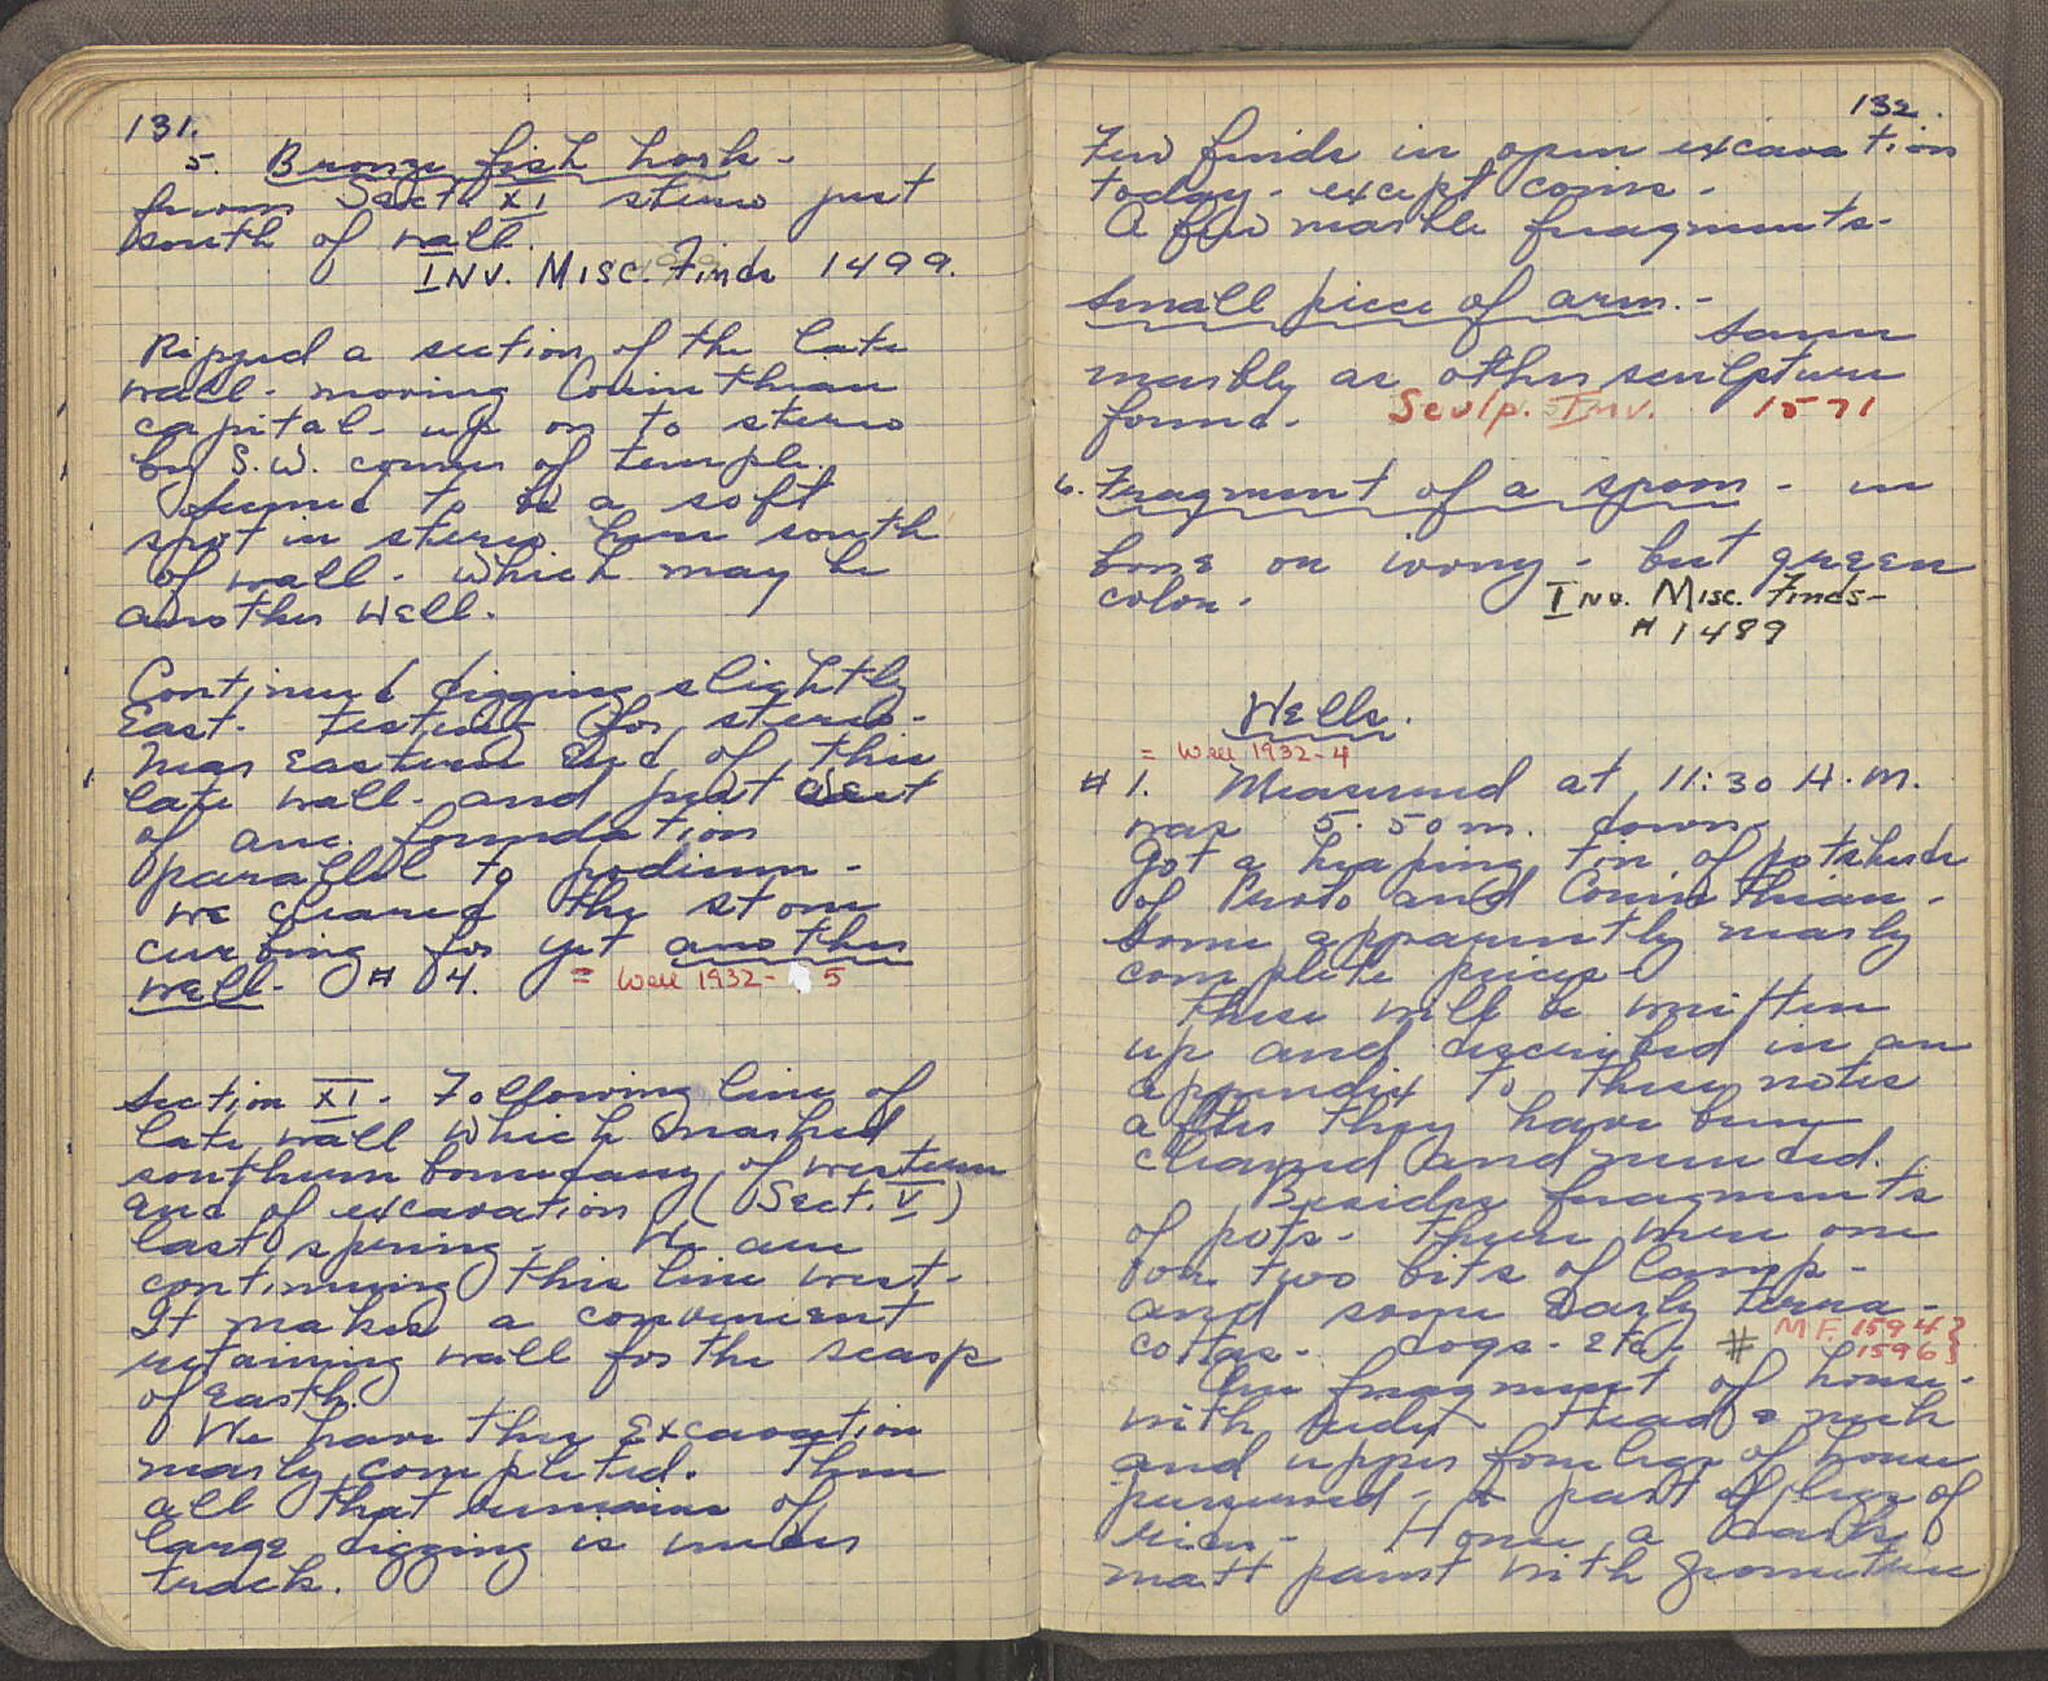 131.
5. Bronze fish hook -
from Sect. XI stereo just
south of wall.
INV. MISC. Finds 1499.
Ripped a section of the late
wall - moving Corinthian
capital - up on to stereo
by S.W. corner of temple.
Seemed to be a soft
spot in stereo here south
of wall - which may be
another well.
Continued digging slightly
East. Testing for stereo.
Near Eastern end of this
late wall - and just
of anc. foundation
parallel to podium -
we cleared the stone
curbing for yet another
well - # 4. = Well 1932- 5
Section XI - Following line of
late wall which marked
southern boundary of western
end of excavation (Sect. V)
last spring - We are
continuing this line west -
It makes a convenient
retaining wall for the scarp
of earth.
We have this Excavation
nearly completed. Then
all that remains of
large digging is under
track.
132.
Few finds in open excavation
today - except coins -
A few marble fragments -
Small piece of arm. -
Same
marble as other sculpture
found. - Sculp. Inv. 1571
6. Fragment of a spoon - in
bone or ivory - but green
color. Inv. Misc. Finds -
# 1489
Wells.
= Well 1932-4
# 1. Measured at 11:30 A.M.
was 5.50 m. down.
Got a heaping tin of potsherds
of Proto and Corinthian -
some apparently nearly
complete pieces -
These will be written
up and described in an
appendix to these notes
after they have been
cleaned and mended.
Besides fragments
of pots - there were one
or two bits of lamp -
and some early terra-
cottas - dogs - etc. # MF. 1594 }
1596 }
One fragment of horse -
with rider - Head & neck
and upper forelegs of horse
preserved - & part of legs of
rider - Horse a dark
matt paint with geometric